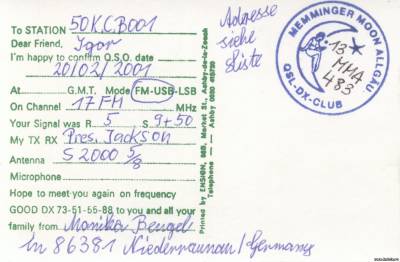 To STATION 50KCB001
Dear Friend, Igor
I'm happy to confirm Q.S.O. date
20/02/2001
At G.M.T. Mode FM-USB-LSB
On Channel 17 FM MHz
Your Signal was R 5 S 9+50
My TX RX Pres. Jackson
Antenna S 2000 5/8
Microphone
Hope to meet you again on frequency
GOOD DX 73-51-55-88 to you and all your
family from Monika Bengel
In 86381 Niederraunau/Germany
Printed by ENSIGN, 58B, Market St., Ashby-de-la-Zouch
Telephone — Ashby 0530
Adresse
siehe
Liste
MEMMINGER MOON ALLGÄU
QSL-DX-CLUB
13
MMA
483